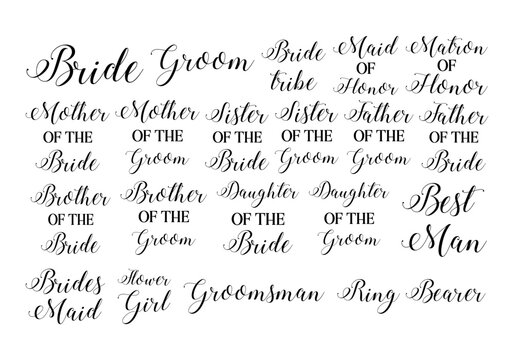 Bride Groom Bride tribe Maid OF Honor Matron OF Honor
Mother OF THE Bride Mother OF THE Groom Sister OF THE Bride Sister OF THE Groom Father OF THE Groom Father OF THE Bride
Brother OF THE Bride Brother OF THE Groom Daughter OF THE Bride Daughter OF THE Groom Best Man
Brides Maid Flower Girl Groomsman Ring Bearer